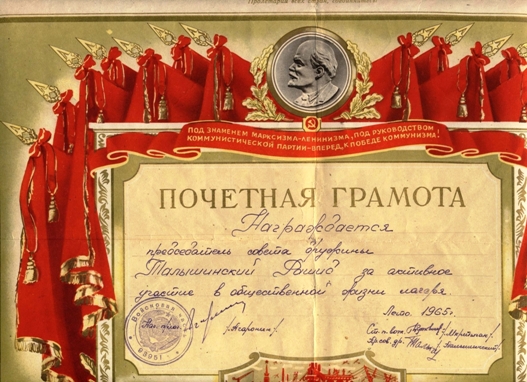 Пролетарии всех стран, соединяйтесь!
ПОД ЗНАМЕНЕМ МАРКСИЗМА-ЛЕНИНИЗМА, ПОД РУКОВОДСТВОМ
КОММУНИСТИЧЕСКОЙ ПАРТИИ-ВПЕРЕД, К ПОБЕДЕ КОММУНИЗМА!
ПОЧЕТНАЯ ГРАМОТА
Награждается
председатель совета дружины
Талышинский за активное
участие в общественной жизни лагеря
Лето 1965г.
Ст. п. вож.